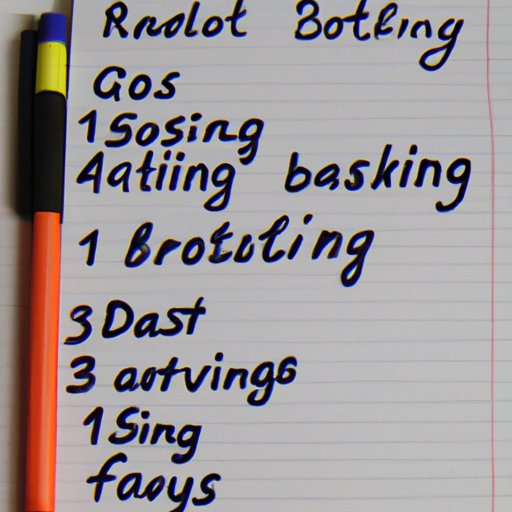 Rnolot Botling
Gos
1 Sosing
4atiing basking
1 Brotoling
3 Dast
3 aotvings
1 Sing
faoys